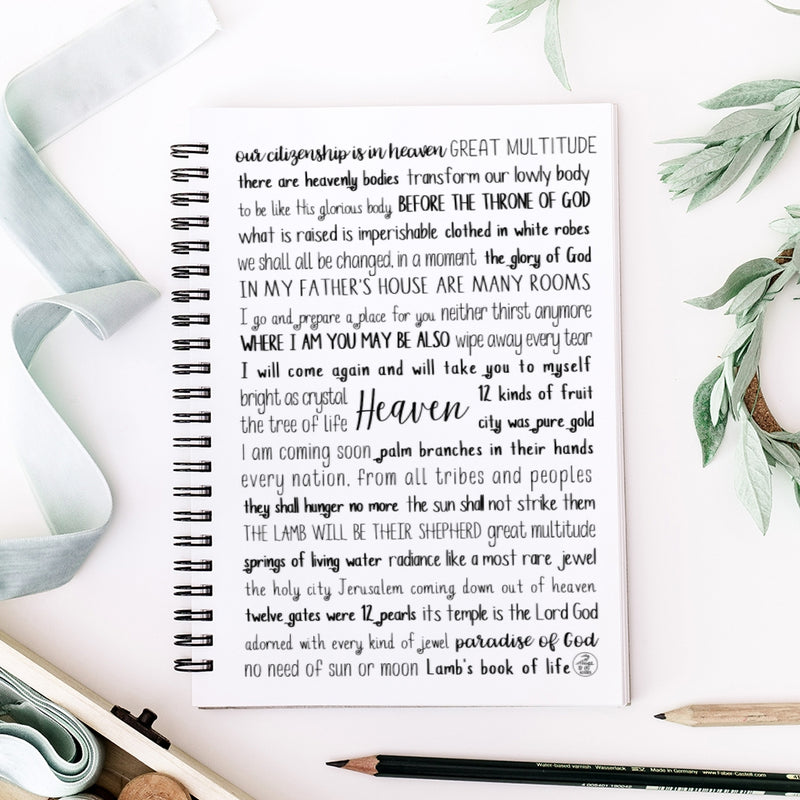 our citizenship is in heaven GREAT MULTITUDE
there are heavenly bodies transform our lowly body
to be like His glorious body BEFORE THE THRONE OF GOD
what is raised is imperishable clothed in white robes
we shall all be changed, in a moment the glory of God
IN MY FATHER'S HOUSE ARE MANY ROOMS
I go and prepare a place for you neither thirst anymore
WHERE I AM YOU MAY BE ALSO wipe away every tear
I will come again and will take you to myself
bright as crystal
the tree of life
Heaven
12 kinds of fruit
city was pure gold
I am coming soon palm branches in their hands
every nation, from all tribes and peoples
they shall hunger no more the sun shall not strike them
THE LAMB WILL BE THEIR SHEPHERD great multitude
springs of living water radiance like a most rare jewel
the holy city Jerusalem coming down out of heaven
twelve gates were 12 pearls its temple is the Lord God
adorned with every kind of jewel paradise of God
no need of sun or moon Lamb's book of life
Water-based varnish Wasserlack Made in Germany www.Faber-Castell.com